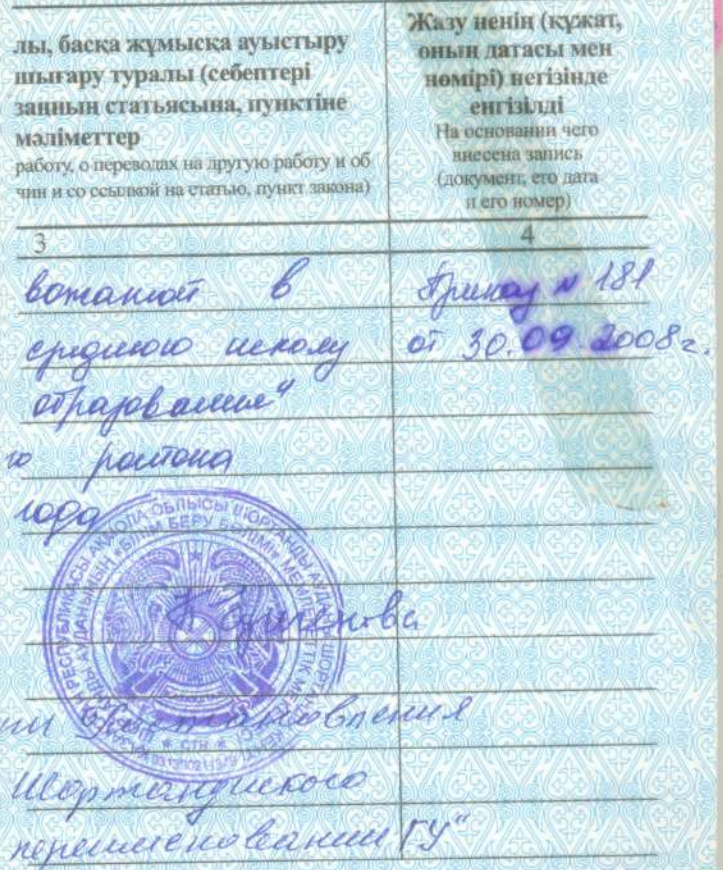 лы, басқа жұмысқа ауыстыру
шығару туралы (себептері
заңның статьясына, пунктіне
мәліметтер
работу, о переводах на другую работу и об
чин и со ссылкой на статью, пункт закона)
Жазу ненің (құжат,
оның датасы мен
нөмірі) негізінде
енгізілді
На основании чего
внесена запись
(документ, его дата
и его номер)
3
4
вожатой в
среднюю школу
образования"
го района
года
Приказ № 181
от 30.09.2008г.
РЕСПУБЛИКАСЫ АҚМОЛА ОБЛЫСЫ ШОРТАНДЫ
БІЛІМ БЕРУ БӨЛІМІ
СТН
ии Постановления
Шортандинского
переименовании ГУ"